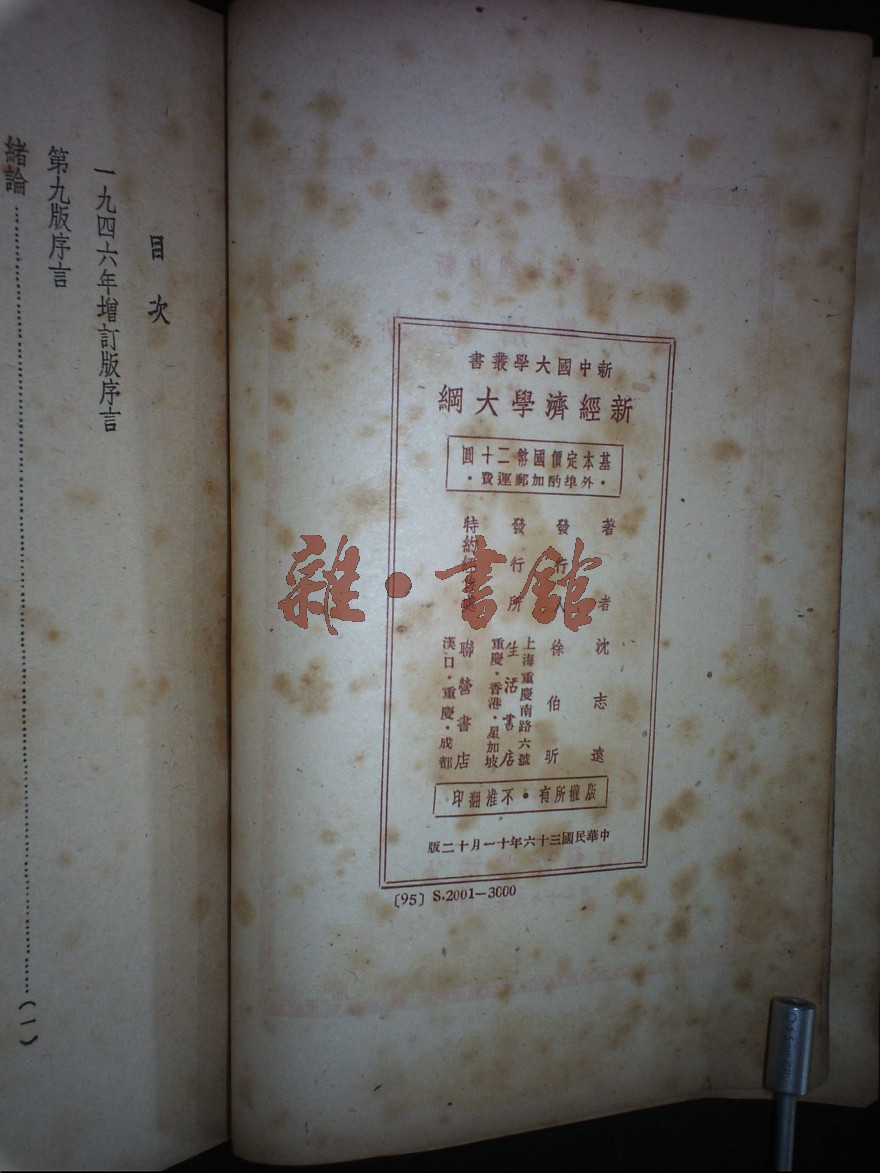 新中國大學叢書
新經濟學大綱
基本定價國幣二十圓
·外埠酌加郵運費·
著者 沈志遠
發行人 徐伯昕
發行所 生活書店
上海重慶南路六號
重慶·香港·星加坡
特約 聯營書店
漢口·重慶·成都
版權所有·不准翻印
中華民國三十六年十一月十二版
〔95〕S.2001—3000
目次
一九四六年增訂版序言
第九版序言
緒論……(一)
雜·書館